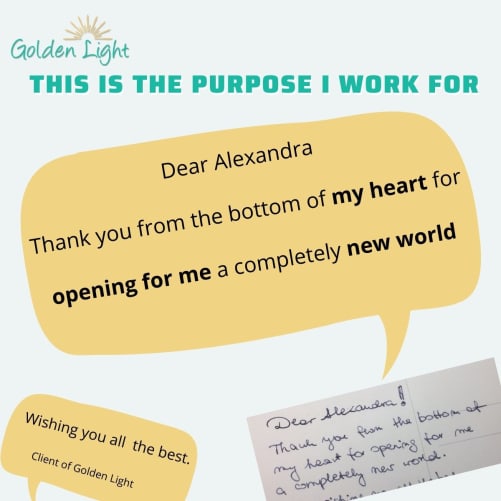 Golden Light
THIS IS THE PURPOSE I WORK FOR
Dear Alexandra
Thank you from the bottom of my heart for
opening for me a completely new world
Wishing you all the best.
Client of Golden Light
Dear Alexandra!
Thank you from the bottom of
my heart for opening for me
a completely new world.